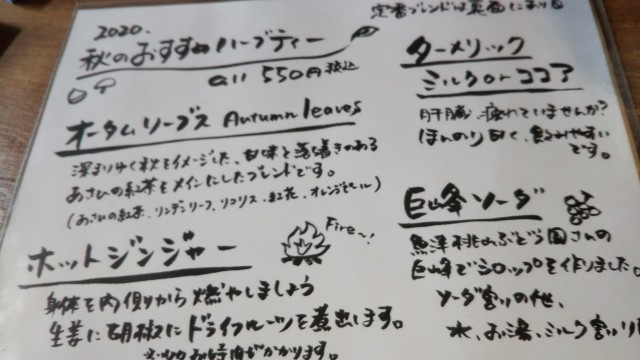 定番ブレンドは裏面にあり
2020.
秋のおすすめハーブティー
all 550円税込
オータムリーブス Autumn leaves
深まりゆく秋をイメージした、甘味と落着きのある
あさひの紅茶をメインにしたブレンドです。
(あさひの紅茶、リンデンリーフ、リコリス、紅花、オレンジピール)
ホットジンジャー
Fire〜!
身体を内側から燃やしましょう
生姜に胡椒にドライフルーツを煮出します。
お時間がかかります。
ターメリック
ミルクorココア
肝臓、疲れていませんか?
ほんのり甘く、飲みやすい
です。
巨峰ソーダ
魚津桃山ぶどう園さんの
巨峰でシロップを作りました。
ソーダ割りの他、
水、お湯、ミルク割り